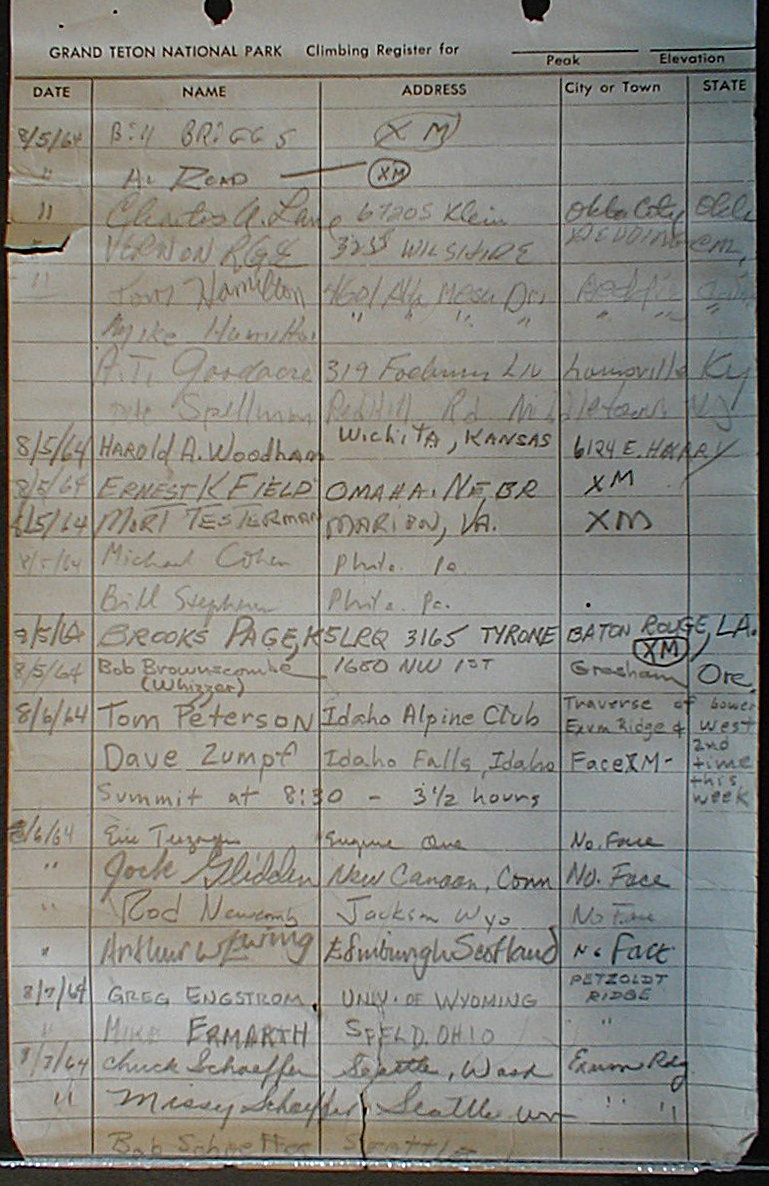 GRAND TETON NATIONAL PARK Climbing Register for
Peak Elevation
DATE NAME ADDRESS City or Town STATE
8/5/64 Bill BRIGGS XM
" Al READ XM
" Charles A. Lane 6720S Klein Okla City Okla
VERNON WILSHIRE REDDING
" Tom Hamilton 4601 Alta Mesa Dr. Redding
Mike Hamilton " " " " " "
A.T. Goodacre 319 Ln Louisville Ky
Spillman Red Hill Rd. Middletown NJ
8/5/64 HAROLD A. WOODHAM WICHITA, KANSAS 6124 E. HARRY
8/5/64 ERNEST K FIELD OMAHA. NEBR XM
8/5/64 MORT TESTERMAN MARION, VA. XM
8/5/64 Michael Cohen Phila. Pa
Bill Stephens Phila. Pa.
8/5/64 BROOKS PAGE, K5LRQ 3165 TYRONE BATON ROUGE, LA.
XM
8/5/64 Bob Brownscombe 1680 NW 1ST Gresham Ore.
(Whizzer)
8/6/64 Tom Peterson Idaho Alpine Club Traverse of Lower
Exum Ridge & West
Dave Zumpf Idaho Falls, Idaho Face XM- 2nd
time
this
week
Summit at 8:30 - 3 1/2 hours
8/6/64 Eugene Ore No. Face
" Jock Glidden New Canaan, Conn No. Face
" Rod Newcomb Jackson Wyo No Face
" Arthur W Ewing Edinburgh Scotland No Face
8/7/64 GREG ENGSTROM. UNIV. OF WYOMING PETZOLDT
RIDGE
" MIKE ERMARTH SPFLD. OHIO "
8/7/64 Chuck Schaeffer Seattle, Wash Exum Rdg
" Missy Schaeffer Seattle Wn " "
Bob SEATTLE